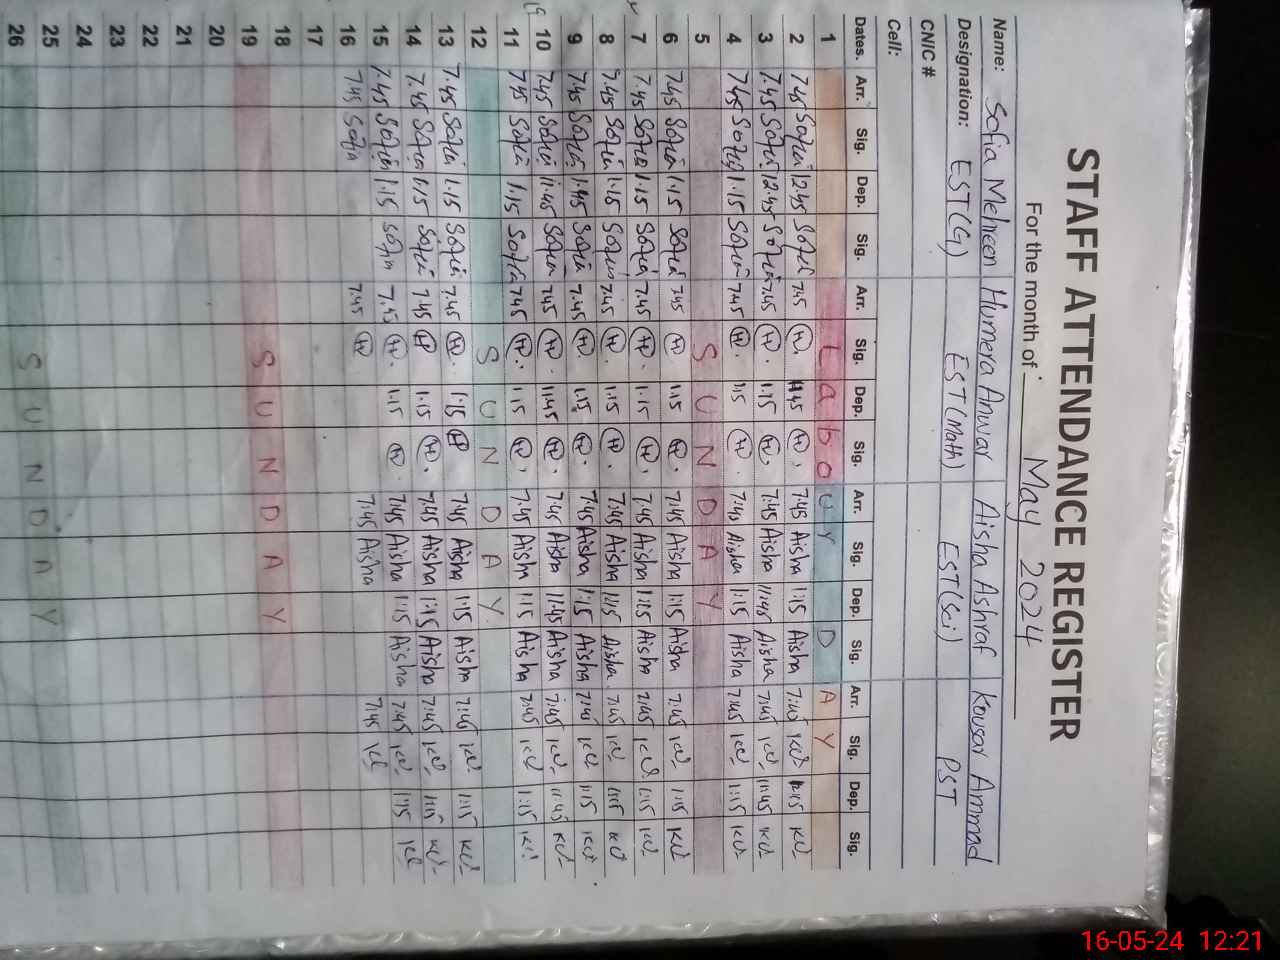 STAFF ATTENDANCE REGISTER
For the month of: May 2024
Name: Sofia Mehreen Humera Anwar Aisha Ashraf Kousar Ammad
Designation: EST(G) EST(Math) EST(Sci) PST
CNIC #
Cell:
Dates. Arr. Sig. Dep. Sig. Arr. Sig. Dep. Sig. Arr. Sig. Dep. Sig. Arr. Sig. Dep. Sig.
1 Labour DAY
2 7.45 Sofia 12.45 Sofia 7.45 H 7:45 Aisha 1:15 Aisha 7:45
3 7.45 Sofia 12.45 Sofia 7.45 H 1.15 H 7:45 Aisha 11:45 Aisha 7:45 11:45
4 7.45 Sofia 1.15 Sofia 7.45 H H 7:45 Aisha 1:15 Aisha 7:45 1:15
5 SUNDAY
6 7.45 Sofia 1.15 Sofia 7.45 H 1.15 H 7:45 Aisha 1:15 Aisha 7:45 1:15
7 7.45 Sofia 1.15 Sofia 7.45 H 1.15 H 7:45 Aisha 1:15 Aisha 7:45 1:15
8 7.45 Sofia 1.15 Sofia 7.45 H 1.15 H 7:45 Aisha 1:15 Aisha 7:45 1:15
9 7.45 Sofia 1.45 Sofia 7.45 H 1.15 H 7:45 Aisha 1:15 Aisha 7:45 1:15
10 7.45 Sofia 11.45 Sofia 7.45 H 11.45 H 7:45 Aisha 11:45 Aisha 7:45 11:45
11 7.45 Sofia 1.15 Sofia 7.45 H 1.15 H 7:45 Aisha 1:15 Aisha 7:45 1:15
12 SUNDAY
13 7.45 Sofia 1.15 Sofia 7.45 H 1.15 H 7:45 Aisha 1:15 Aisha 7:45 1:15
14 7.45 Sofia 1.15 Sofia 7.45 H 1.15 H 7:45 Aisha 1:15 Aisha 7:45 1:15
15 7.45 Sofia 1.15 Sofia 7.45 H 1.15 H 7:45 Aisha 1:15 Aisha 7:45 1:15
16 7.45 Sofia 7.45 H 7:45 Aisha 7:45
17
18
19 SUNDAY
20
21
22
23
24
25
26 SUNDAY
16-05-24 12:21